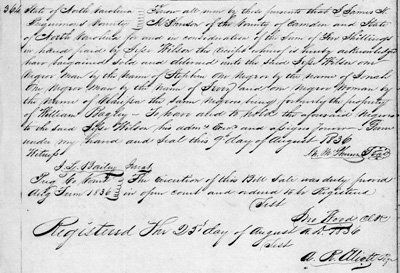 364 State of North Carolina Know all men by these presents that I James N.
Perquimans County McPherson of the County of Camden and State
of North Carolina for and in consideration of the Sum of Five Shillings
in hand paid by Wilson the receipt whereof is hereby acknowledged
have bargained sold and delivered unto the said Wilson one
Negro Man by the name of Stephen One Negro by the name of
One Negro Man by the name of and one Negro Woman by
the Name of the Same Negroes being formerly the property
of William Bagley - To have and to hold the aforesaid Negroes
to the said Wilson his and assigns forever - Given
under my hand and Seal this 9th day of August 1836
Witness Seal
J. L. Bailey
The execution of this Bill Sale was duly proved
Augt Term 1836 in open court and ordered to be Registered
Test
Jno Wood Clk
Registered the 23d day of August A.D. 1836
Test